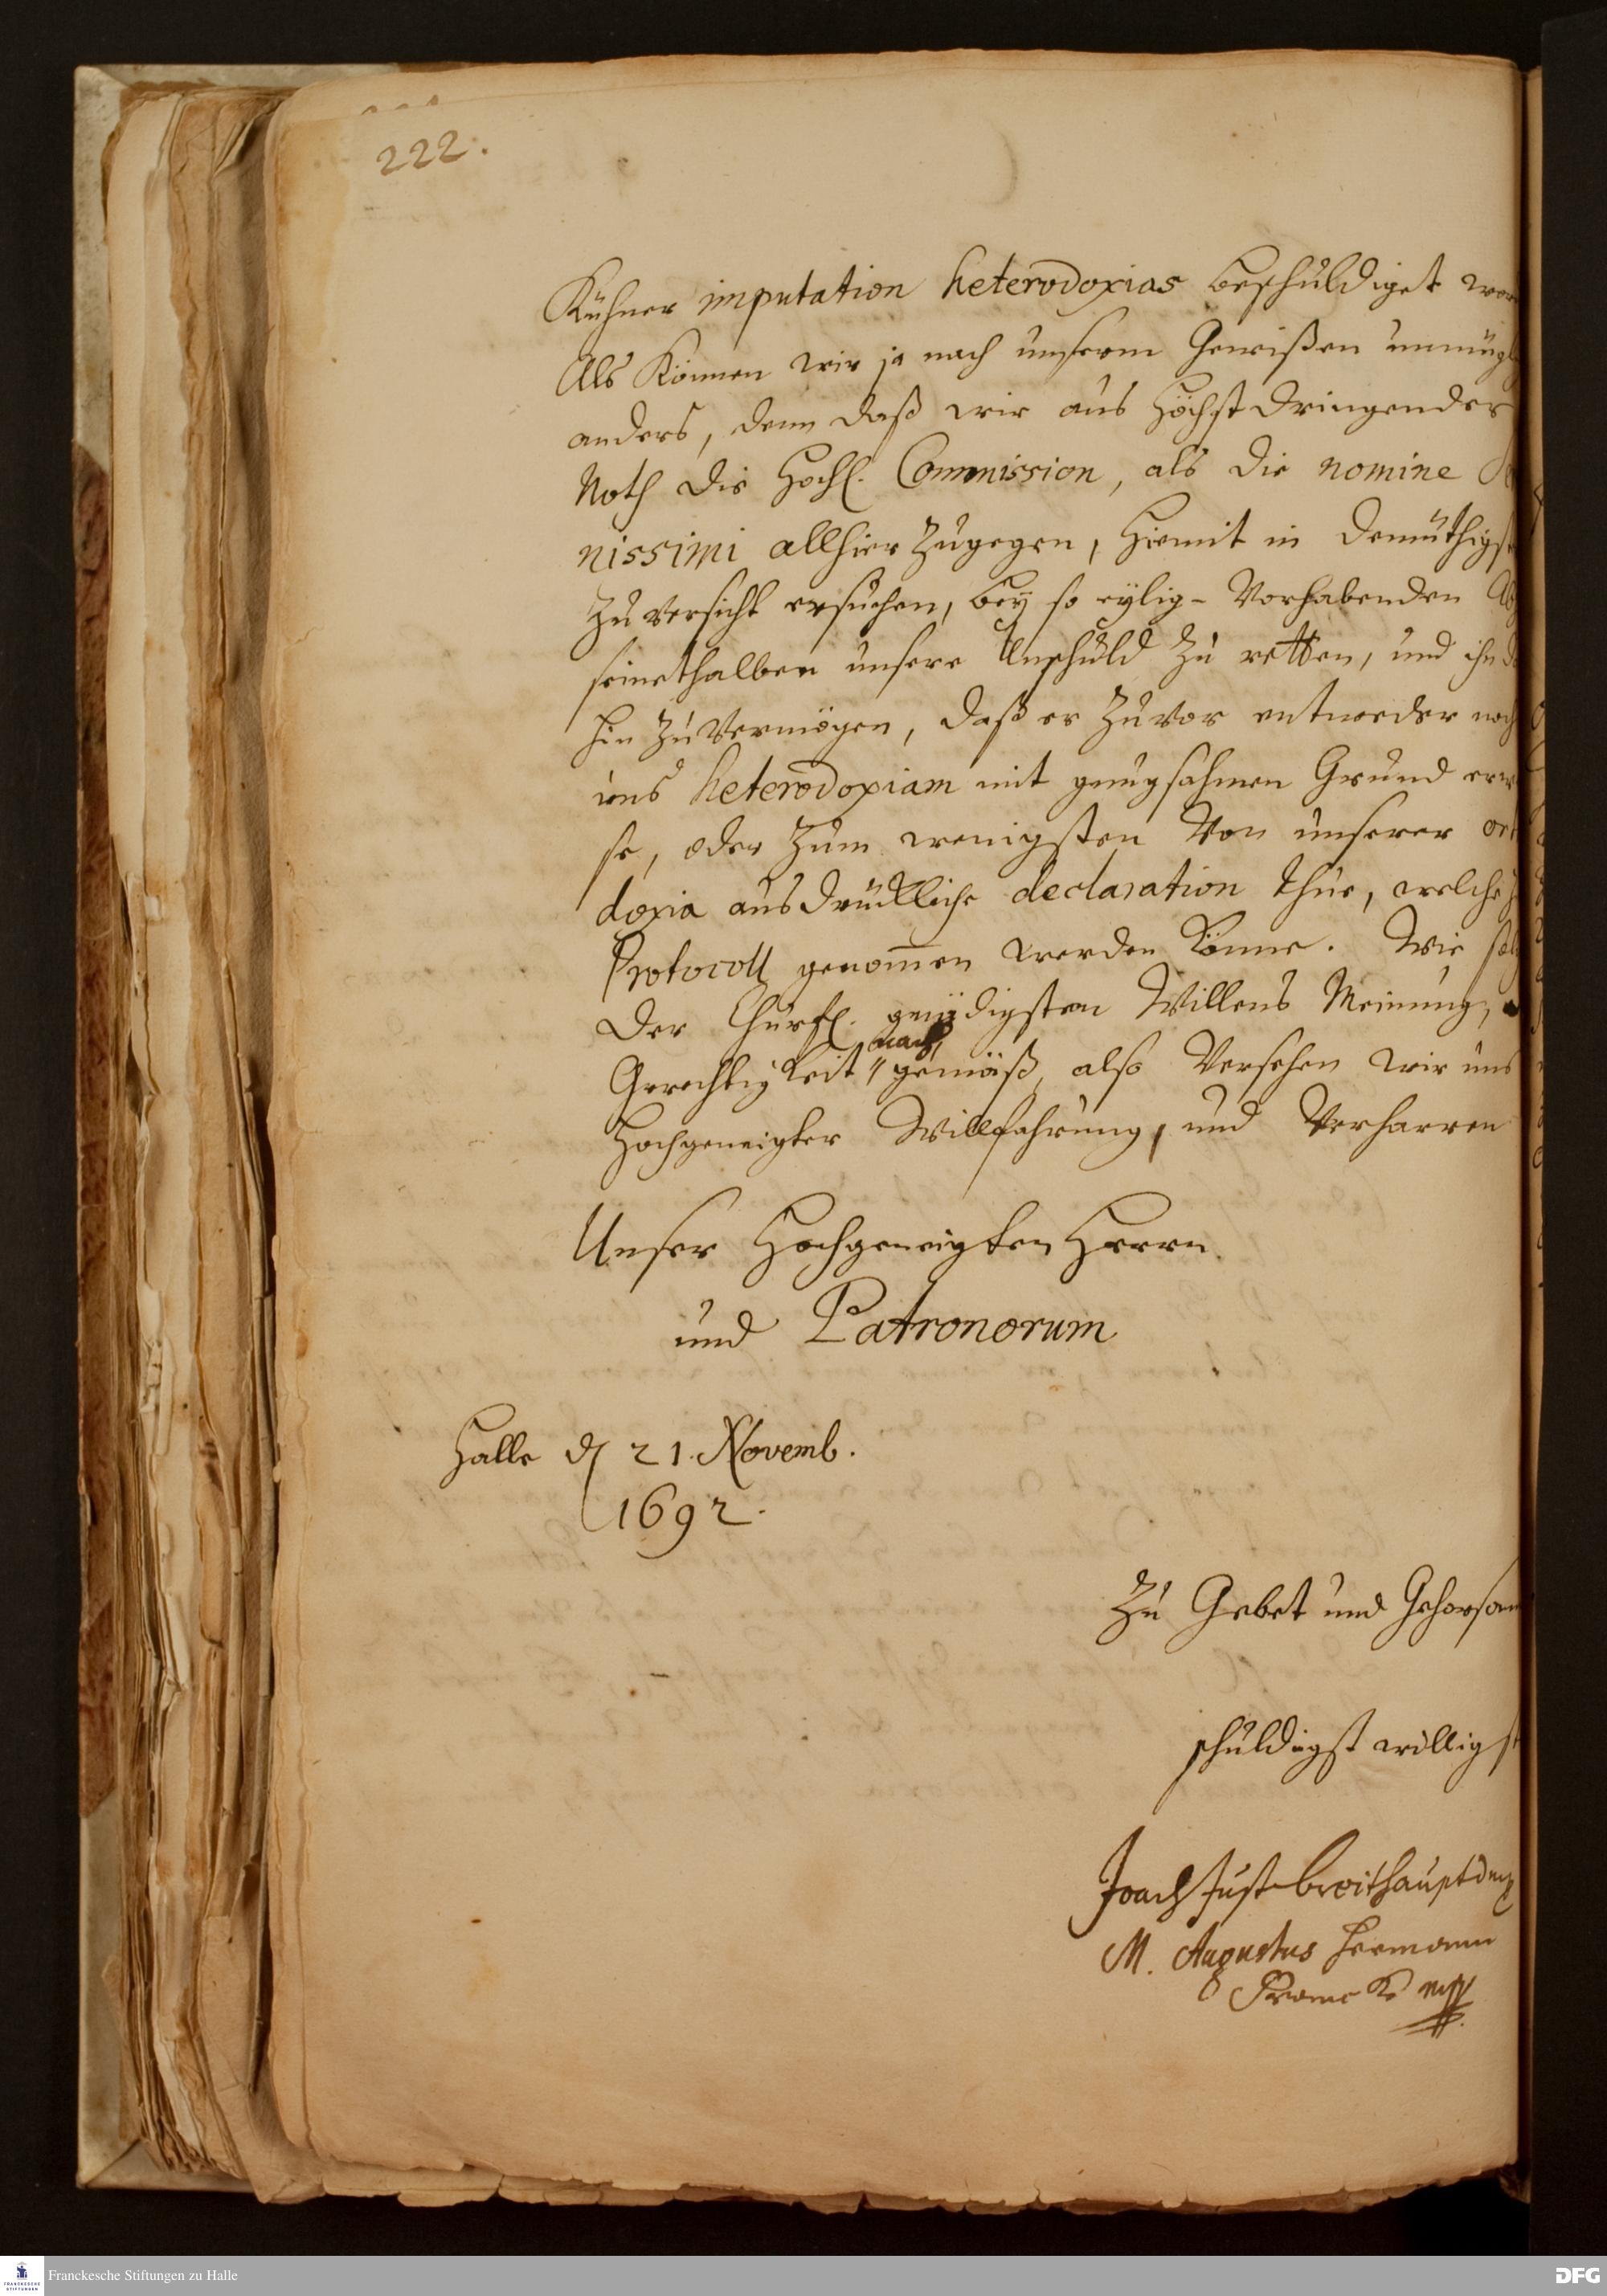 222.
Kühner imputation heterodoxias beschuldiget wor
Als Können wir ja nach unserm Gewißen unmügl
anders, denn daß wir aus höchst dringender
Noth die Hochl. Commission, als die nomine Se
nissimi allhier zugegen, hiemit in demüthigst
zuversicht ersuchen, bey so eylig-Vorhabenden Ab
seinethalben unsere Unschuld zu retten, und ihn da
hin zu vermögen, daß er zuvor entweder noch
uns heterodoxiam mit gnugsahmen Grund erw
se, oder zum wenigsten Von unserer ort
doxia ausdrückliche declaration thue, welche z
Protocoll genom̅en werden könne. Wie sol
der Churfl. gnädigsten Willens Meinung,
nach
Gerechtigkeit " gemäß, also Versehen wir uns
Hochgeneigter Willfahrung, und Verharren
Unser Hochgeneigten Herrn
und Patronorum
Halle d 21. Novemb.
1692.
Zu Gebet und Gehorsam
schuldigst willigst
Joach Just Breithaupt D mp
M. Augustus Hermann
Francke mpp.
Franckesche Stiftungen zu Halle
FRANCKESCHE STIFTUNGEN
DFG